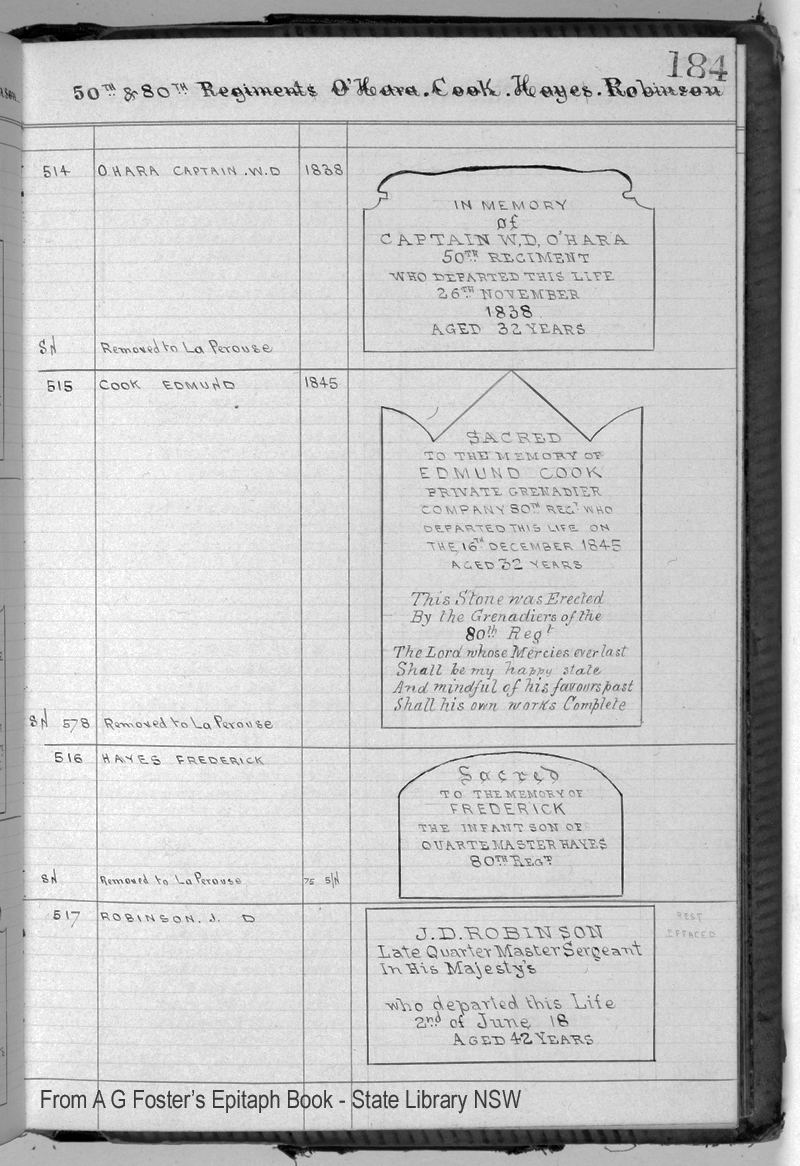 184
50TH & 80TH Regiments O'Hara. Cook. Hayes. Robinson
514 O'HARA CAPTAIN. W.D 1838
IN MEMORY
of
CAPTAIN W.D. O'HARA
50TH REGIMENT
WHO DEPARTED THIS LIFE
26TH NOVEMBER
1838
AGED 32 YEARS
SN Removed to La Perouse
515 COOK EDMUND 1845
SACRED
TO THE MEMORY OF
EDMUND COOK
PRIVATE GRENADIER
COMPANY 80TH REGT WHO
DEPARTED THIS LIFE ON
THE 16TH DECEMBER 1845
AGED 32 YEARS
This Stone was Erected
By the Grenadiers of the
80th Regt
The Lord whose Mercies ever last
Shall be my happy state
And mindful of his favours past
Shall his own works Complete
SN 578 Removed to La Perouse
516 HAYES FREDERICK
Sacred
TO THE MEMORY OF
FREDERICK
THE INFANT SON OF
QUARTEMASTER HAYES
80TH REGT
SN Removed to La Perouse 75 S/N
517 ROBINSON. J. D
J.D. ROBINSON
Late Quarter Master Sergeant
In His Majesty's
who departed this Life
2nd of June 18
AGED 42 YEARS
REST
EFFACED
From A G Foster's Epitaph Book - State Library NSW